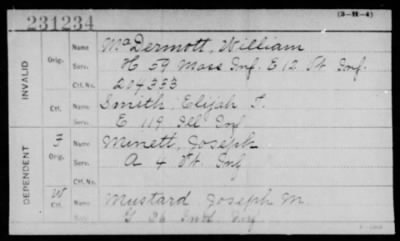 231234
(3-111-4)
INVALID
Orig. Name McDermott, William
Serv. H 59 Mass Inf. E 12 Vt. Inf.
Ctf. No. 204333
Ctf. Name Smith Elijah T.
Serv. E 119 Ill Inf
DEPENDENT
Orig. Name Minett, Joseph
Serv. A 4 Vt. Inf
Ctf. No.
W Ctf. Name Mustard, Joseph M
G 36 Ind. Inf.